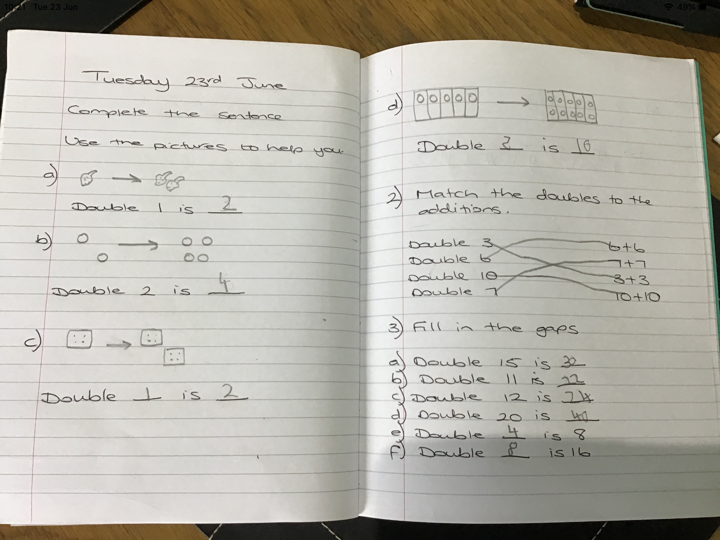 10:21 Tue 23 Jun
49%
Tuesday 23rd June
Complete the sentence
Use the pictures to help you
a)
Double 1 is 2
b)
Double 2 is 4
c)
Double 1 is 2
d)
Double is 10
2) Match the doubles to the
additions.
Double 3 6+6
Double 6 7+7
Double 10 3+3
Double 7 10+10
3) Fill in the gaps
a) Double 15 is 30
b) Double 11 is 22
c) Double 12 is 24
d) Double 20 is 40
e) Double 4 is 8
f) Double 8 is 16